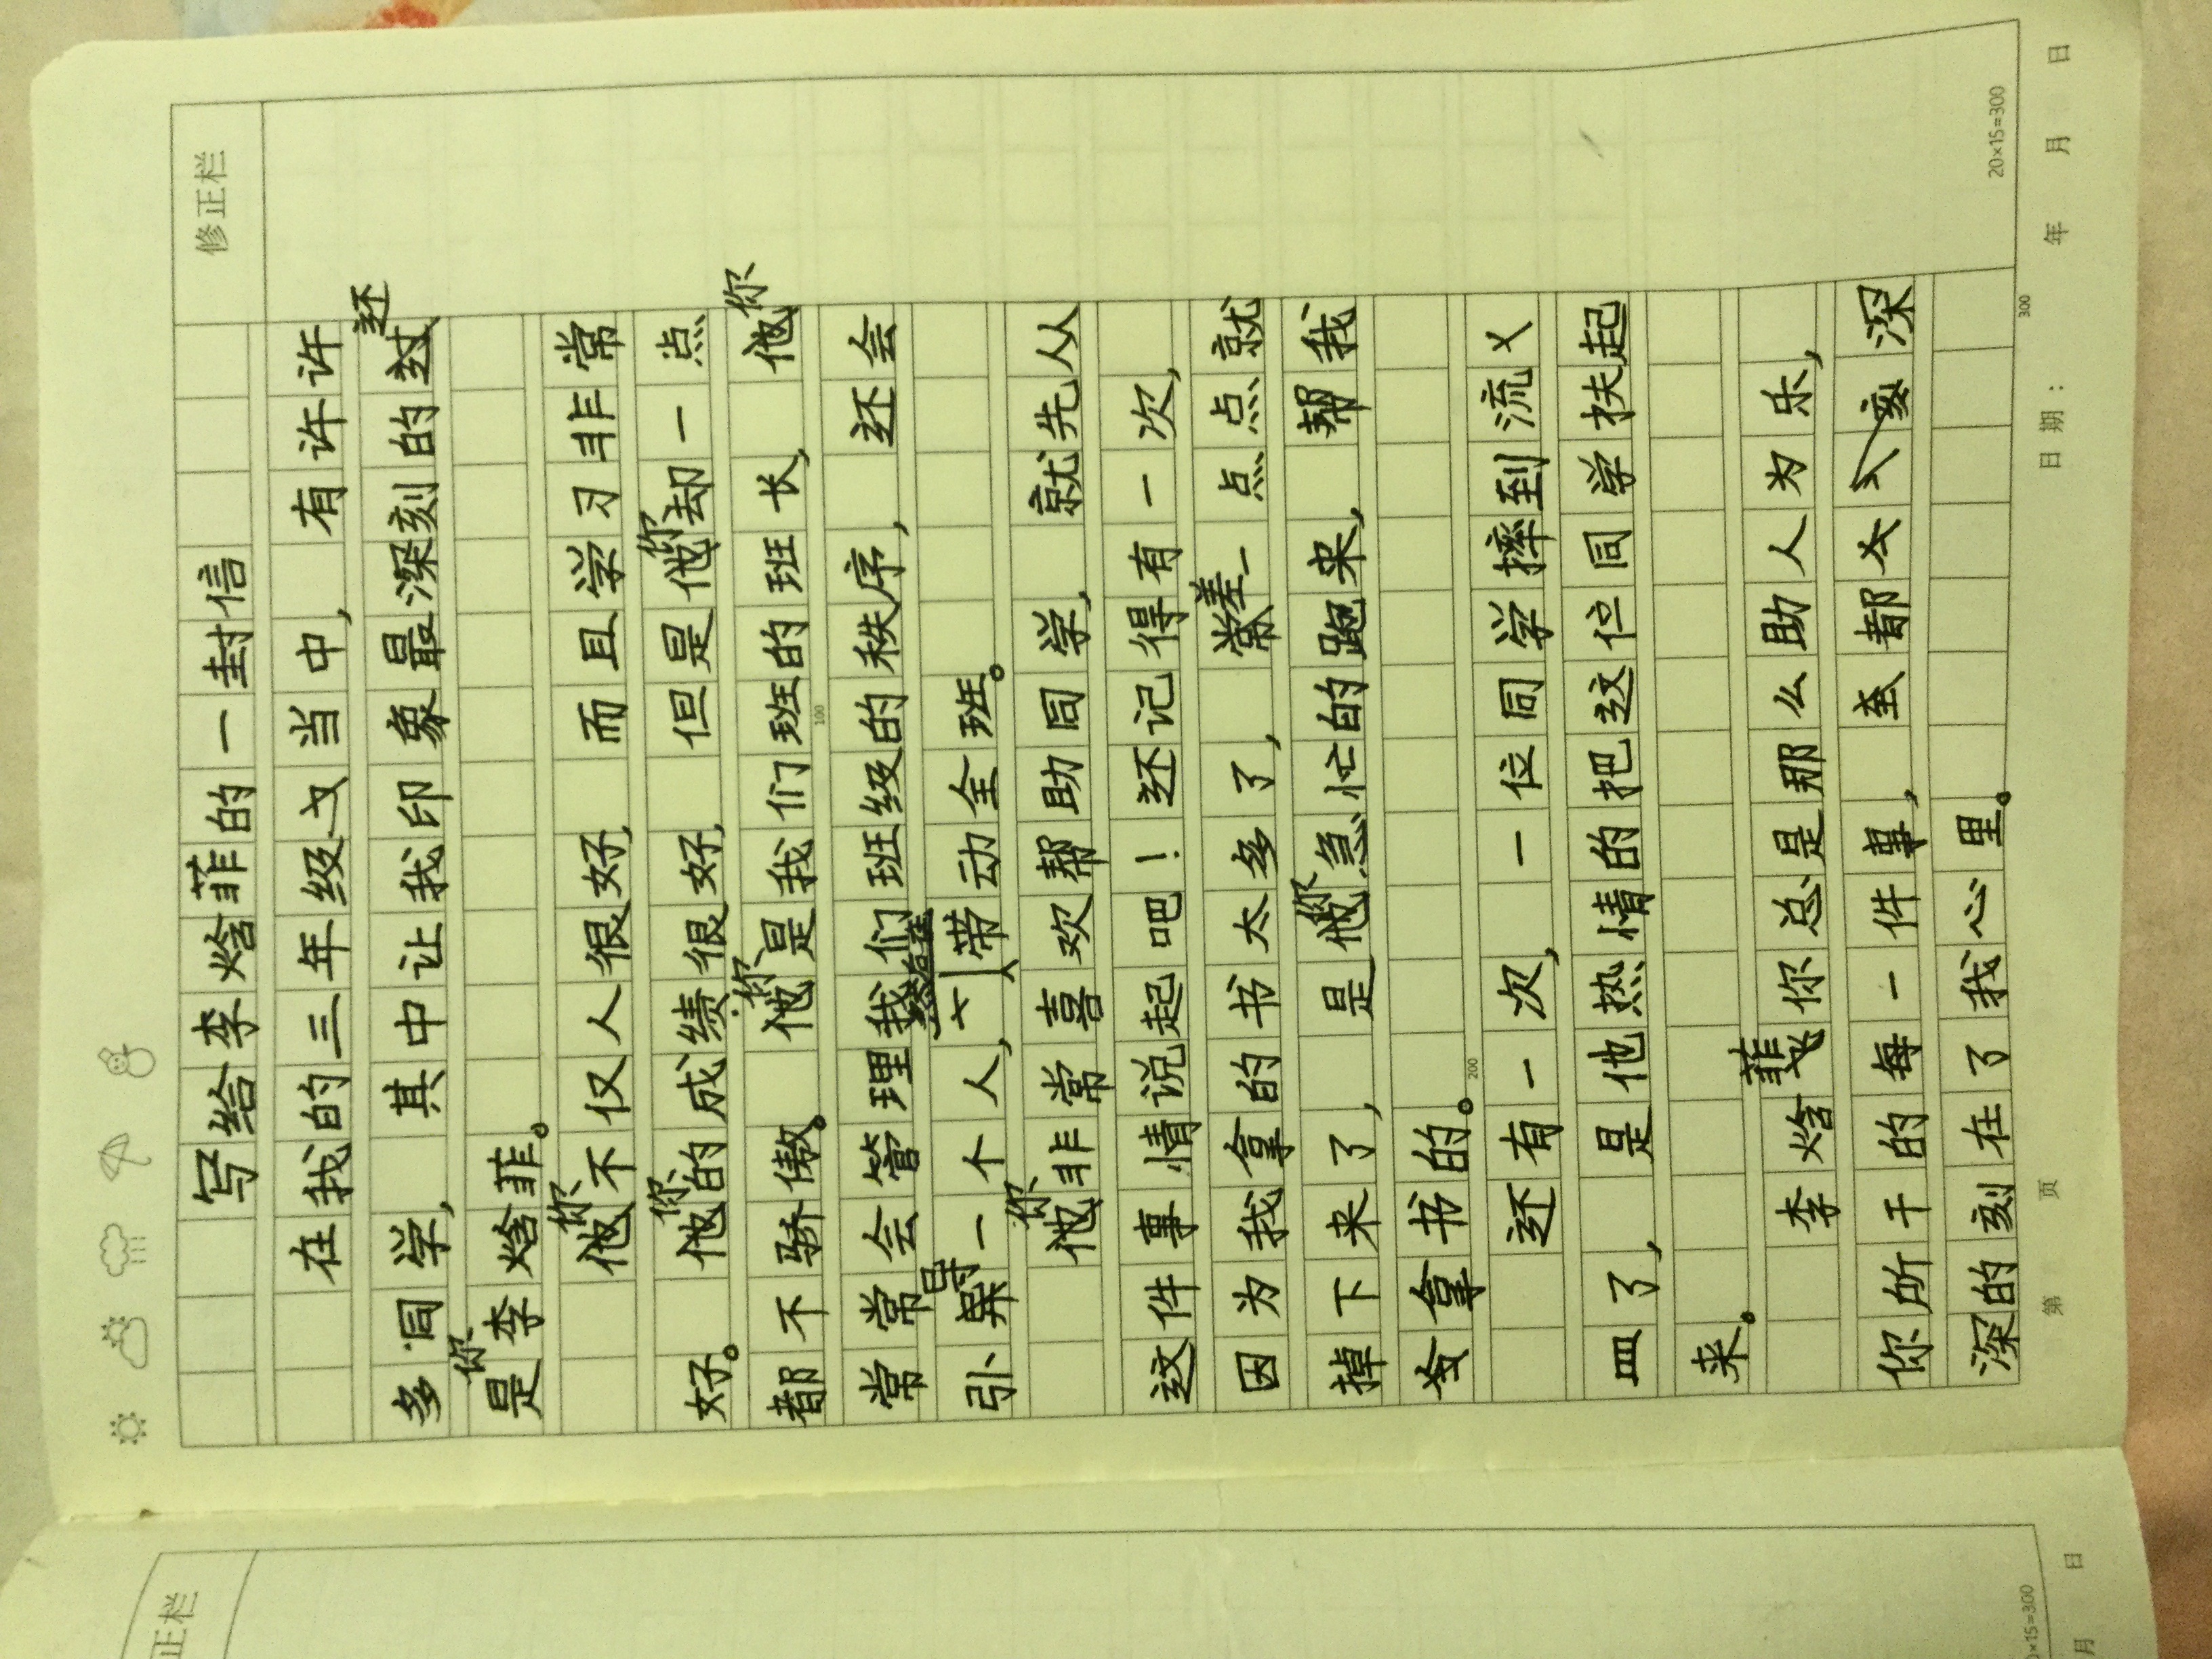 修正栏
写给李焓菲的一封信
在我的三年级当中,有许许
多同学,其中让我印象最深刻的还
是你李焓菲。
你不仅人很好,而且学习非常
好。你的成绩很好,但是你却一点
都不骄傲。你是我们班的班长,你
常常会管理我们班级的秩序,还会
引导一个人,带动全班。
你非常喜欢帮助同学,就先从
这件事情说起吧!还记得有一次,
因为我拿的书太多了,差一点点就
掉下来了,是你急忙的跑来,帮我
拿书的。
还有一次,一位同学摔到流
皿了,是他热情的把这位同学扶起
来。
李焓菲你总是那么助人为乐,
你所干的每一件事,都深
深的刻在了我心里。
100
200
300
20×15=300
第 页 日期: 年 月 日
正栏
×15=300
月 日